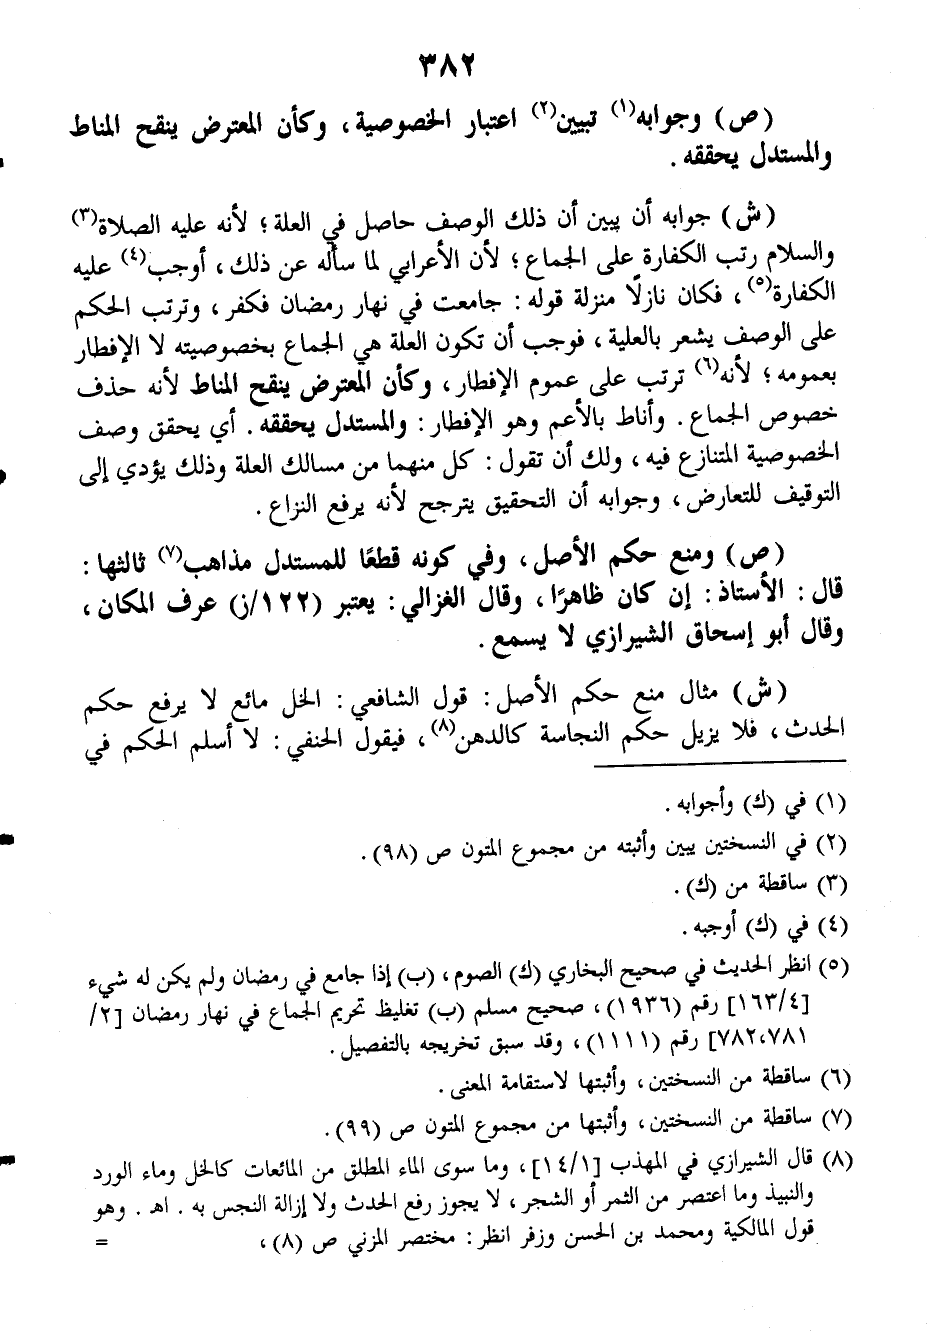 ٣٨٢
(ص) وجوابه(١) تبيين(٢) اعتبار الخصوصية، وكأن المعترض ينقح المناط
والمستدل يحققه.
(ش) جوابه أن يبين أن ذلك الوصف حاصل في العلة؛ لأنه عليه الصلاة(٣)
والسلام رتب الكفارة على الجماع؛ لأن الأعرابي لما سأله عن ذلك، أوجب(٤) عليه
الكفارة(٥)، فكان نازلًا منزلة قوله: جامعت في نهار رمضان فكفر، وترتب الحكم
على الوصف يشعر بالعلية، فوجب أن تكون العلة هي الجماع بخصوصيته لا الإفطار
بعمومه؛ لأنه(٦) ترتب على عموم الإفطار، وكأن المعترض ينقح المناط لأنه حذف
خصوص الجماع. وأناط بالأعم وهو الإفطار: والمستدل يحققه. أي يحقق وصف
الخصوصية المتنازع فيه، ولك أن تقول: كل منهما من مسالك العلة وذلك يؤدي إلى
التوقيف للتعارض، وجوابه أن التحقيق يترجح لأنه يرفع النزاع.
(ص) ومنع حكم الأصل، وفي كونه قطعًا للمستدل مذاهب(٧) ثالثها:
قال: الأستاذ: إن كان ظاهرًا، وقال الغزالي: يعتبر (١٢٢/ز) عرف المكان،
وقال أبو إسحاق الشيرازي لا يسمع.
(ش) مثال منع حكم الأصل: قول الشافعي: الخل مائع لا يرفع حكم
الحدث، فلا يزيل حكم النجاسة كالدهن(٨)، فيقول الحنفي: لا أسلم الحكم في
(١) في (ك) وأجوابه.
(٢) في النسختين يبين وأثبته من مجموع المتون ص (٩٨).
(٣) ساقطة من (ك).
(٤) في (ك) أوجبه.
(٥) انظر الحديث في صحيح البخاري (ك) الصوم، (ب) إذا جامع في رمضان ولم يكن له شيء
[١٦٣/٤] رقم (١٩٣٦)، صحيح مسلم (ب) تغليظ تحريم الجماع في نهار رمضان [٢/
٧٨٢،٧٨١] رقم (١١١١)، وقد سبق تخريجه بالتفصيل.
(٦) ساقطة من النسختين، وأثبتها لاستقامة المعنى.
(٧) ساقطة من النسختين، وأثبتها من مجموع المتون ص (٩٩).
(٨) قال الشيرازي في المهذب [١٤/١]، وما سوى الماء المطلق من المائعات كالخل وماء الورد
والنبيذ وما اعتصر من الثمر أو الشجر، لا يجوز رفع الحدث ولا إزالة النجس به. اهـ. وهو
قول المالكية ومحمد بن الحسن وزفر انظر: مختصر المزني ص (٨)، =